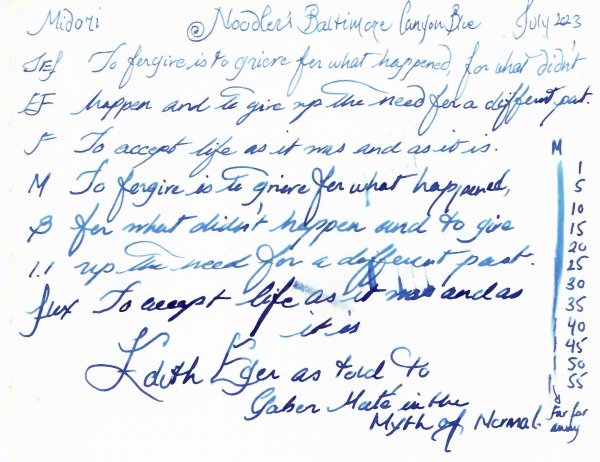 Midori @ Noodler's Baltimore Canyon Blue July 2023
JEf To forgive is to grieve for what happened, for what didn't
EF happen and to give up the need for a different past.
F To accept life as it was and as it is.
M To forgive is to grieve for what happened,
B for what didn't happen and to give
1.1 up the need for a different past.
flex To accept life as it was and as
it is
Edith Eger as told to
Gabor Maté in the
Myth of Normal.
M
1
5
10
15
20
25
30
35
40
45
50
55
Far far
away